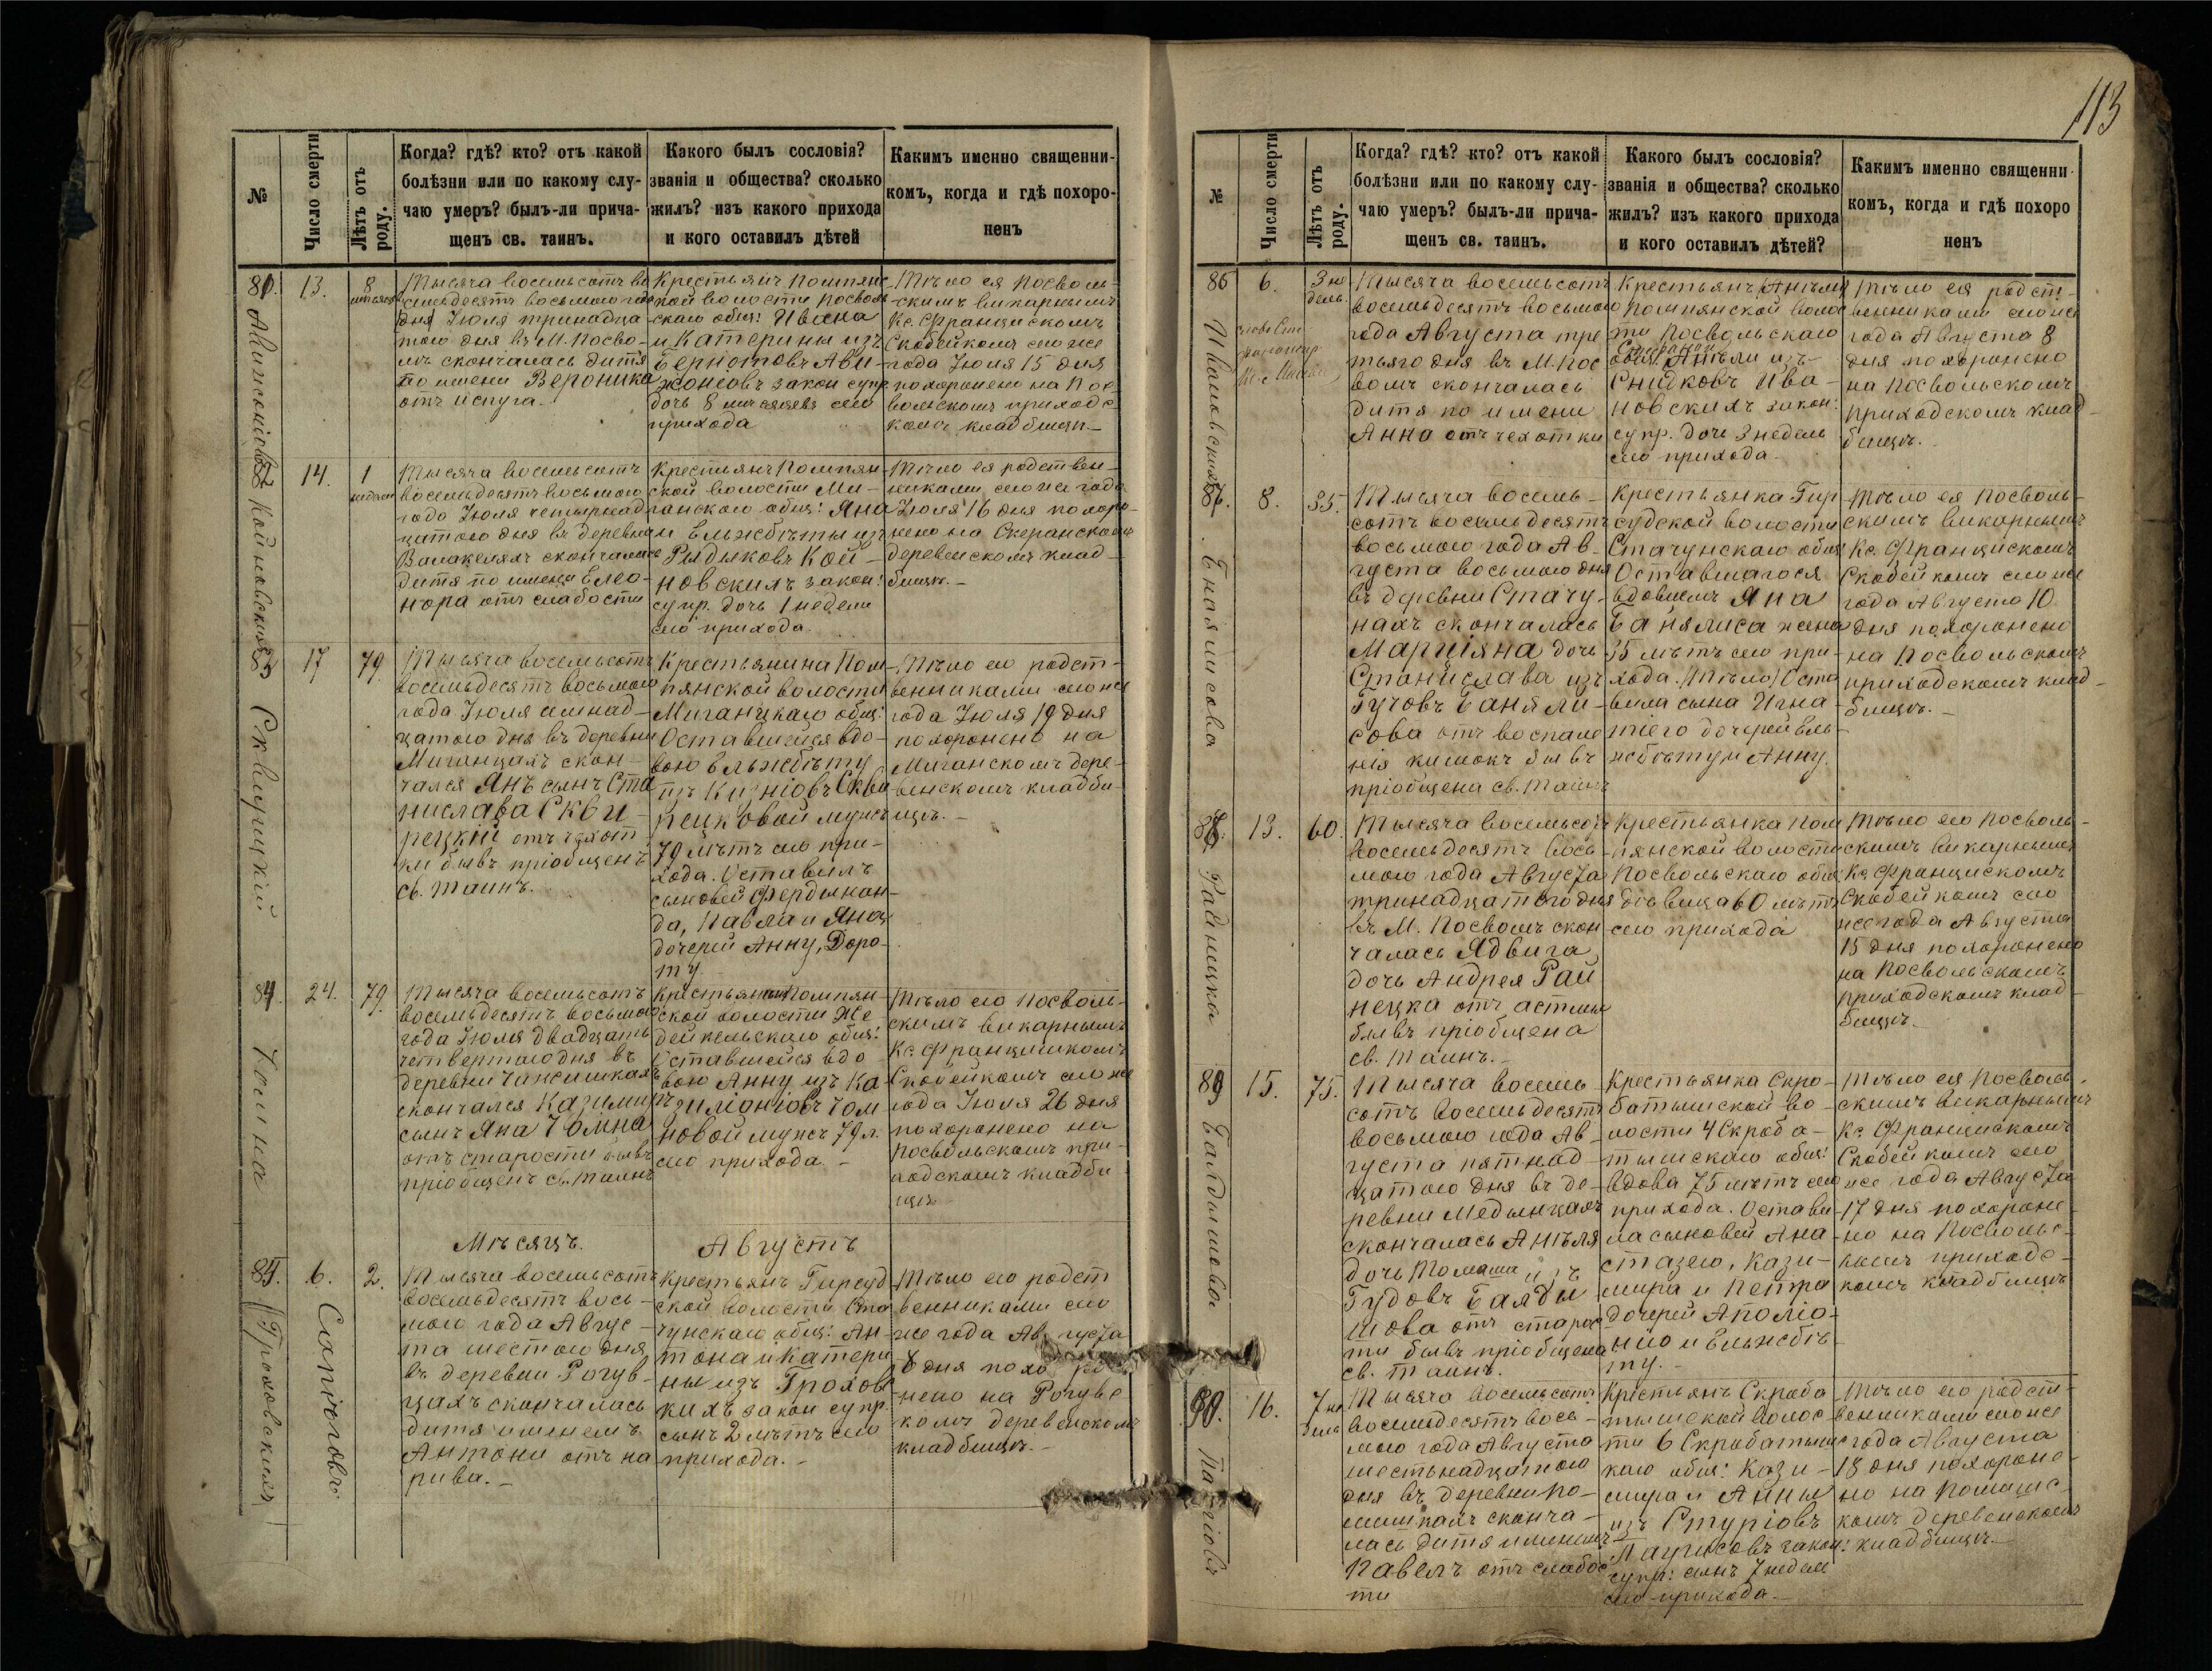 113
№
Число смерти
Лѣтъ отъ роду.
Когда? гдѣ? кто? отъ какой
болѣзни или по какому слу-
чаю умеръ? былъ-ли прича-
щенъ св. таинъ.
Какого былъ сословія?
званія и общества? сколько
жилъ? изъ какого прихода
и кого оставилъ дѣтей
Какимъ именно священни-
комъ, когда и гдѣ похоро-
ненъ
81.
13.
8
Тысяча восемьсотъ во
семьдесятъ восьмого года
дня Іюля тринадца
того дня въ М. Посво-
лѣ скончалась дитя
по имени Вероника
отъ испуга.
Крестьянъ Помпянс
кой волости Посволь
скаго общ: Ивана
и Катерины изъ
закон супр
дочь 8 мѣсяцевъ сего
прихода
Тѣло ея Посволь-
скимъ викарнымъ
Кс. Францискомъ
Скобейкомъ сего же
года Іюля 15 дня
похоронено на Пос
вольскомъ приходс
комъ кладбищѣ.
14.
1
недели
Тысяча восемьсотъ
восемьдесятъ восьмого
года Іюля четырнад
цатого дня въ деревни
скончалась
дитя по имени Елео-
нора отъ слабости
Крестьянъ Помпян-
ской волости Ми-
ганскаго общ: Яна
и Ельжбѣты изъ
Рыдыковъ Кой-
новскихъ закон:
супр. дочь 1 недели
сего прихода.
Тѣло ея родствен-
никами сего же года
Іюля 16 дня похоро-
нено на
деревенскомъ клад-
бищѣ.
83
Сквирицкій
17
79.
Тысяча восемьсотъ
восемьдесятъ восьмого
года Іюля семнад-
цатого дня въ деревни
Миганцахъ скон-
чался Янъ сынъ Ста
нислава Скви-
рецкій отъ чахот
ки бывъ пріобщенъ
св. таинъ.
Крестьянина Пом-
пянской волости
Миганцкаго общ:
Оставшейся вдо-
вою Ельжбѣту
изъ Скви
рецковой мужъ
79 лѣтъ сего при-
хода. Оставилъ
сыновей Фердынан-
да, Павла и Яна
дочерей Анну, Доро-
ту.
Тѣло его родст-
венниками сего же
года Іюля 19 дня
похоронено на
Миганскомъ дере-
венскомъ кладби
щѣ.
84.
24.
79.
Тысяча восемьсотъ
восемьдесятъ восьмого
года Іюля двадцать
четвертаго дня въ
деревни
скончался Казимиръ
сынъ Яна
отъ старости бывъ
пріобщенъ св. таинъ
Крестьянинъ Помпян-
ской волости
общ:
Оставшейся вдо
вою Анну изъ
мужъ 79 л.
сего прихода.
Тѣло его Посволь-
скимъ викарнымъ
Кс. Францишкомъ
Скобейкомъ сего же
года Іюля 26 дня
похоронено на
Посвольскомъ при-
ходскомъ кладби
щѣ
Мѣсяцъ. Августъ
85.
Гроховскихъ
6.
2.
Тысяча восемьсотъ
восемьдесятъ вось-
мого года Авгус-
та шестого дня
въ деревни Рогув-
цахъ скончалась
дитя именемъ
Антони отъ на
рива.
Крестьянъ Гирсуд
ской волости Ста
чунскаго общ: Ан-
тона и Катери
ны изъ Грохов
кихъ закон супр.
сынъ 2 лѣтъ сего
прихода.
Тѣло его родст
венниками сего
же года Августа
8 дня похоро
нено на Рогувс
комъ деревенскомъ
кладбищѣ.
№
Число смерти
Лѣтъ отъ роду.
Когда? гдѣ? кто? отъ какой
болѣзни или по какому слу-
чаю умеръ? былъ-ли прича-
щенъ св. таинъ.
Какого былъ сословія?
званія и общества? сколько
жилъ? изъ какого прихода
и кого оставилъ дѣтей?
Какимъ именно священни-
комъ, когда и гдѣ похоро
ненъ
86
Ивановскихъ
6.
3 не
дель.
Тысяча восемьсотъ
восемьдесятъ восьмого
года Августа тре
тьяго дня въ М. Пос
волѣ скончалась
дитя по имени
Анна отъ чахотки
Крестьянъ
Помпянской волос
ти Посвольскаго
общ: Анѣли изъ
Снидковъ Ива-
новскихъ закон:
супр. дочь 3 недель
сего прихода.
Тѣло ея родст-
венниками сего же
года Августа 8
дня похоронено
на Посвольскомъ
приходскомъ клад-
бищѣ.
8.
35.
Тысяча восемь-
сотъ восемьдесятъ
восьмого года Ав-
густа восьмого дня
въ деревни Стачу-
нахъ скончалась
Марціяна дочь
Станислава изъ
Гучовъ Баняли-
сова отъ воспале
нія кишокъ бывъ
пріобщена св. таинъ
Крестьянка Гир
судской волости
Стачунскаго общ
Оставшагося
вдовцемъ Яна
Банялиса жена
35 лѣтъ сего при-
хода. (Тѣло) Оста
вила сына Игна-
тіего дочерей Ель-
жбѣту и Анну.
Тѣло ея Посволь-
скимъ викарнымъ
Кс. Францискомъ
Скобейкомъ сего же
года Августа 10
дня похоронено
на Посвольскомъ
приходскомъ клад-
бищѣ.
88.
Райнецка
13.
60.
Тысяча восемьсотъ
восемьдесятъ вось
мого года Августа
тринадцатого дня
въ М. Посволѣ скон
чалась Ядвига
дочь Андрея Рай
нецка отъ астмы
бывъ пріобщена
св. таинъ.
Крестьянка Пом
пянской волости
Посвольскаго общ
дѣвица 60 лѣтъ
сего прихода
Тѣло его Посволь-
скимъ викарнымъ
Кс. Францискомъ
Скобейкомъ сего
же года Августа
15 дня похоронено
на Посвольскомъ
приходскомъ клад
бищѣ.
89
15.
75.
Тысяча восемь
сотъ восемьдесятъ
восьмого года Ав-
густа пятнад-
цатого дня въ де-
ревни Медынцахъ
скончалась Анѣля
дочь Томаша изъ
Гудовъ Балды
шова отъ старос
ти бывъ пріобщена
св. таинъ.
Крестьянка Скро-
батышской во-
лости 4 Скроба-
тышскаго общ:
вдова 75 лѣтъ сего
прихода. Остави-
ла сыновей Ана-
стазего, Кази-
мира и Петра
дочерей Аполіо-
нію и Ельжбѣ-
ту.
Тѣло ея Посволь-
скимъ викарнымъ
Кс. Францискомъ
Скобейкомъ сего
же года Августа
17 дня похороне-
но на Посвольс-
комъ приходс-
комъ кладбищѣ
90.
16.
7 не
дель
Тысяча восемьсотъ
восемьдесятъ вось-
мого года Августа
шестьнадцатого
дня въ деревни По-
мишкахъ сконча-
лась дитя именемъ
Павелъ отъ слабос-
ти
Крестьянъ Скроба
тышской волос-
ти 6 Скробатышс
каго общ: Кази-
мира и Анны
изъ Стуріовъ
закон:
супр: сынъ 7 недель
сего прихода.
Тѣло его родст-
венниками сего же
года Августа
18 дня похороне-
но на
комъ деревенскомъ
кладбищѣ.